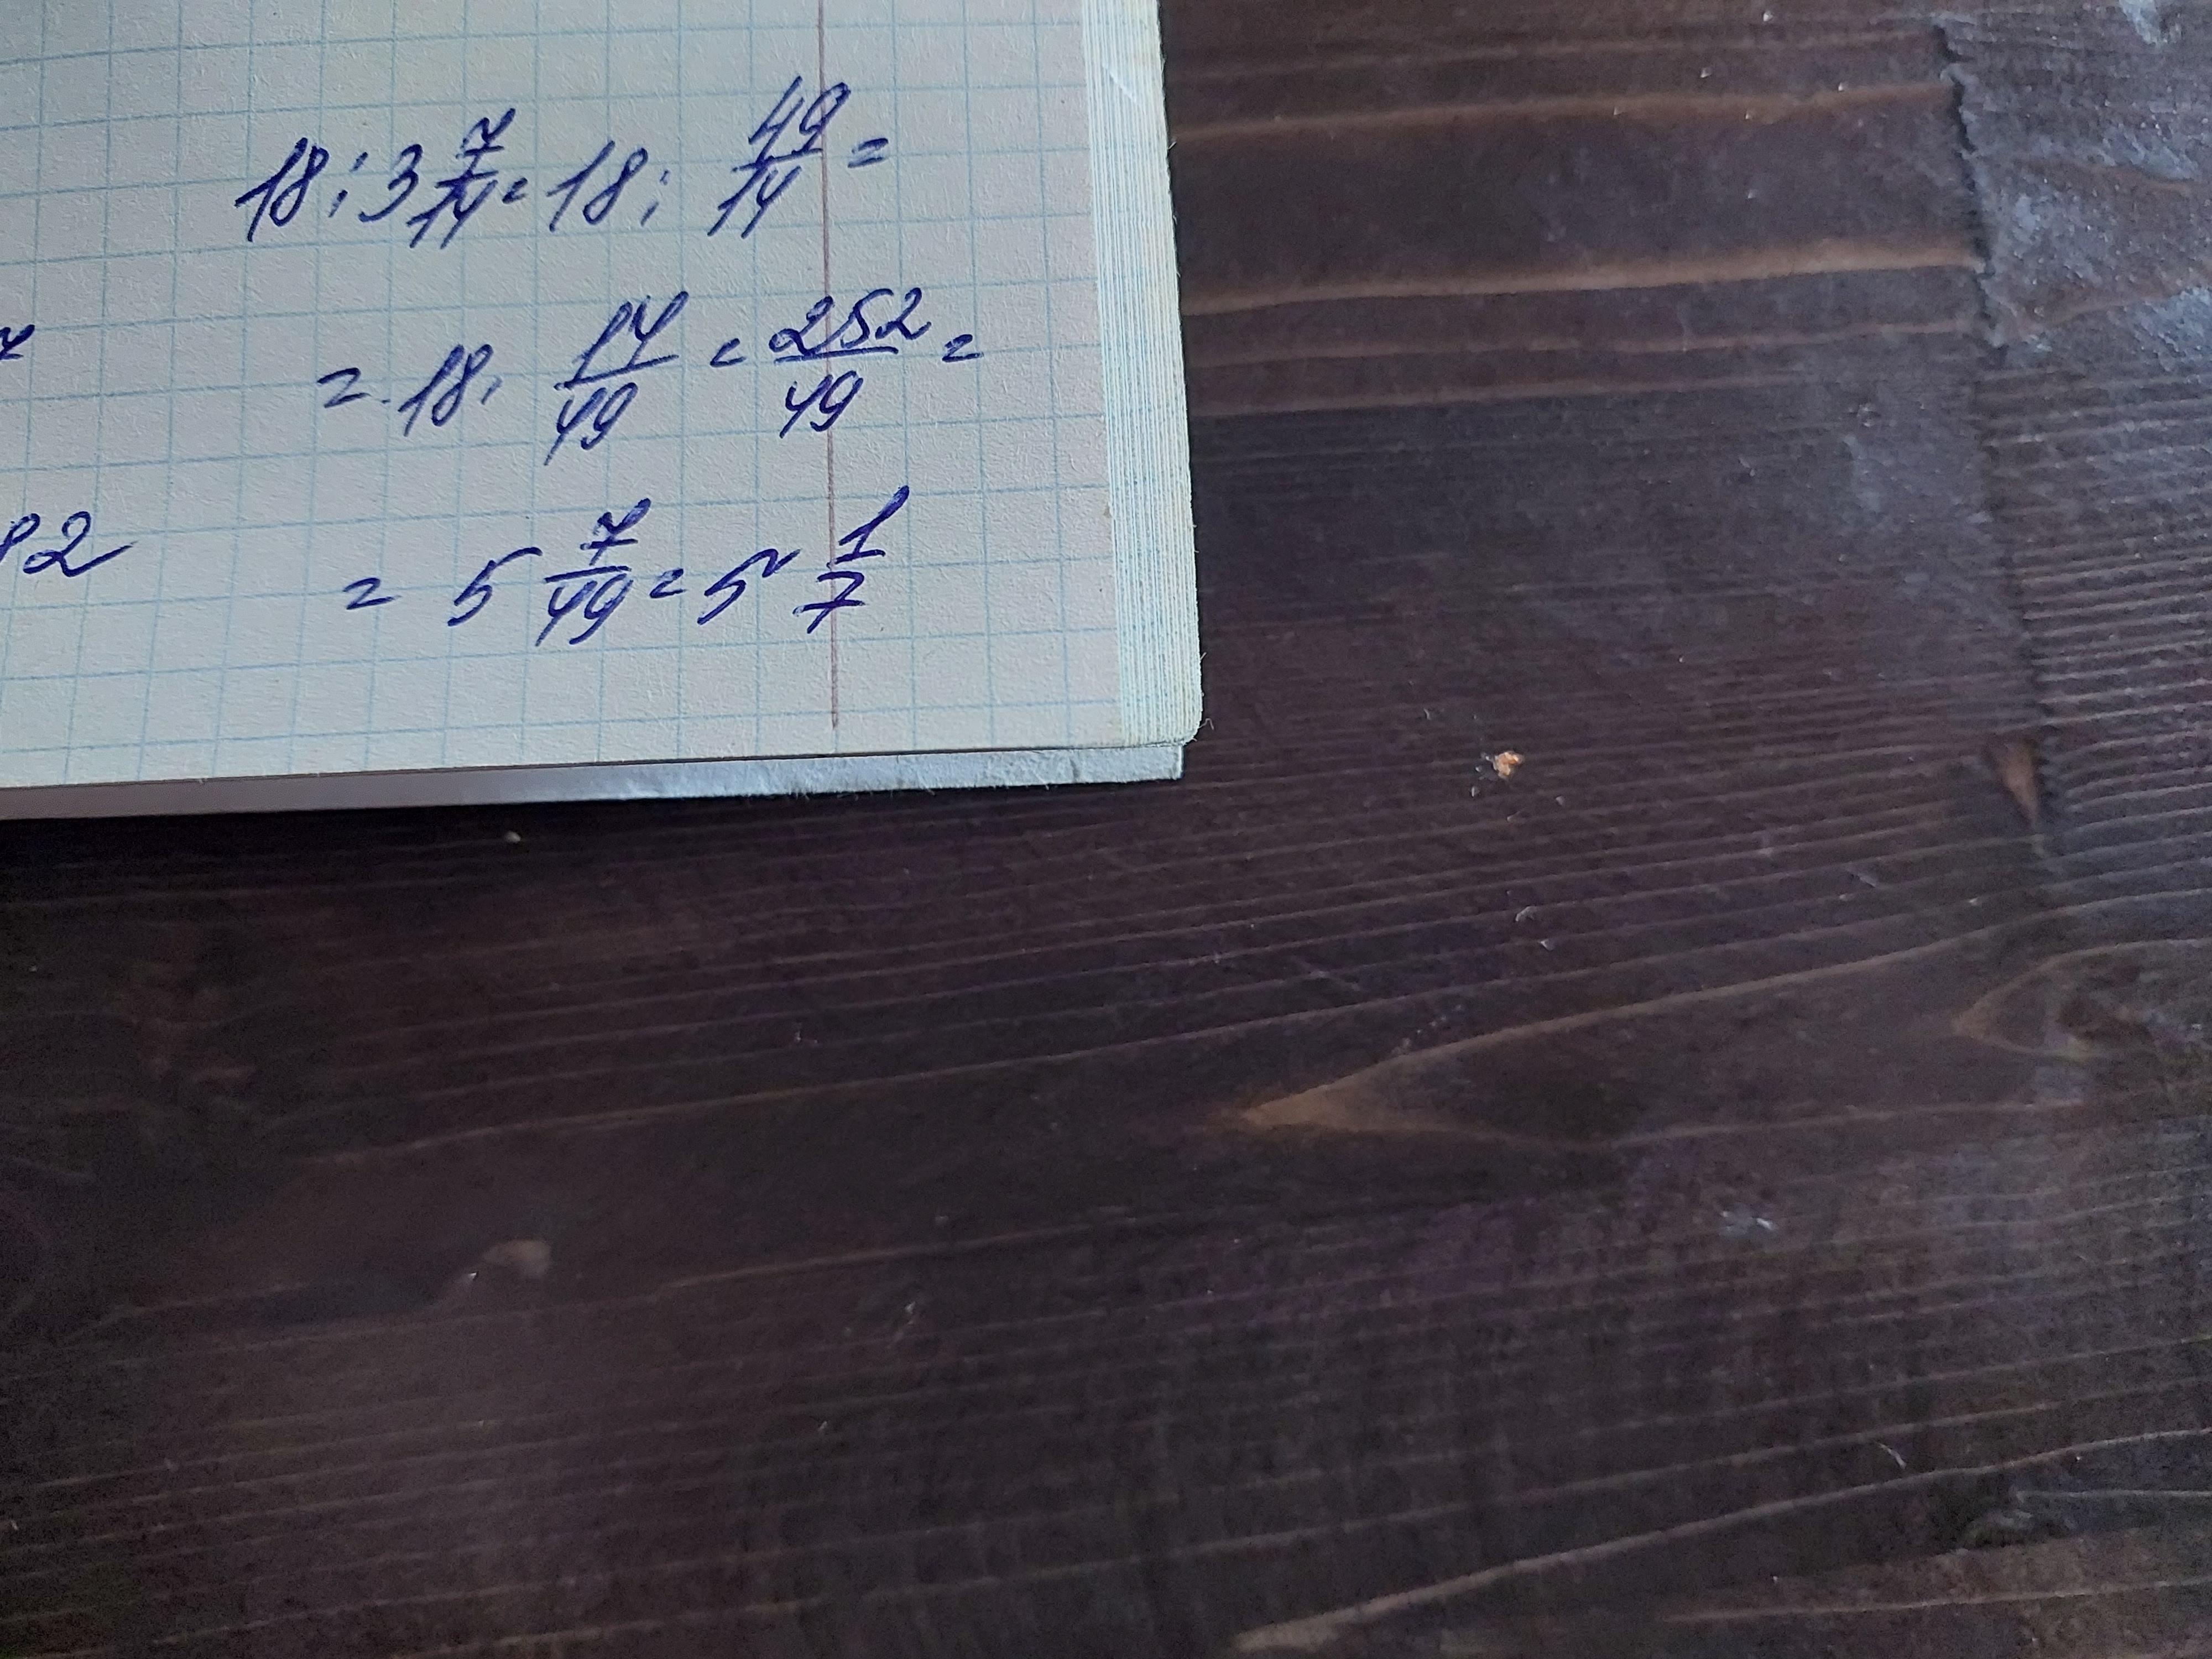 18 : 3 7/14 = 18 : 49/14 =
= 18 · 14/49 = 252/49 =
= 5 7/49 = 5 1/7